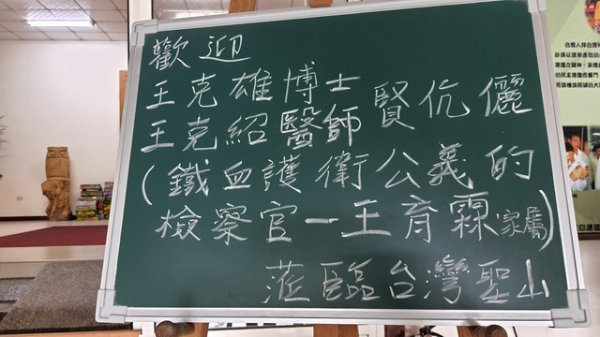 歡迎
王克雄博士
王克紹醫師 賢伉儷
(鐵血護衛公義的
檢察官一王育霖家屬)
蒞臨台灣聖山